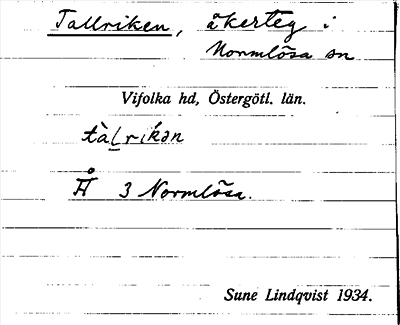 Tallriken, åkerteg i
Normlösa sn
Vifolka hd, Östergötl. län.
tàl̲rikən
Å 3 Normlösa.
Sune Lindqvist 1934.